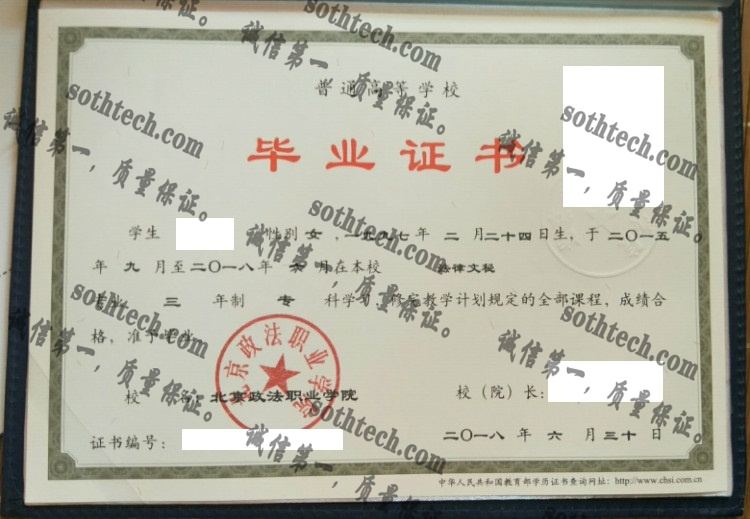 普通高等学校
毕业证书
学生 性别 女，一九九七年 二 月二十四日生，于二〇一五
年 九 月至二〇一八年 六 月在本校 法律文秘
专业 三 年制 专 科学习，修完教学计划规定的全部课程，成绩合
格，准予毕业。
校 名：北京政法职业学院 校（院）长：
证书编号： 二〇一八 年 六 月 三十 日
中华人民共和国教育部学历证书查询网址：http://www.chsi.com.cn
北京政法职业学院
sothtech.com
诚信第一，质量保证。
sothtech.com
诚信第一，质量保证。
sothtech.com
诚信第一，质量保证。
sothtech.com
诚信第一，质量保证。
sothtech.com
诚信第一，质量保证。
sothtech.com
诚信第一，质量保证。
sothtech.com
诚信第一，质量保证。
sothtech.com
诚信第一，质量保证。